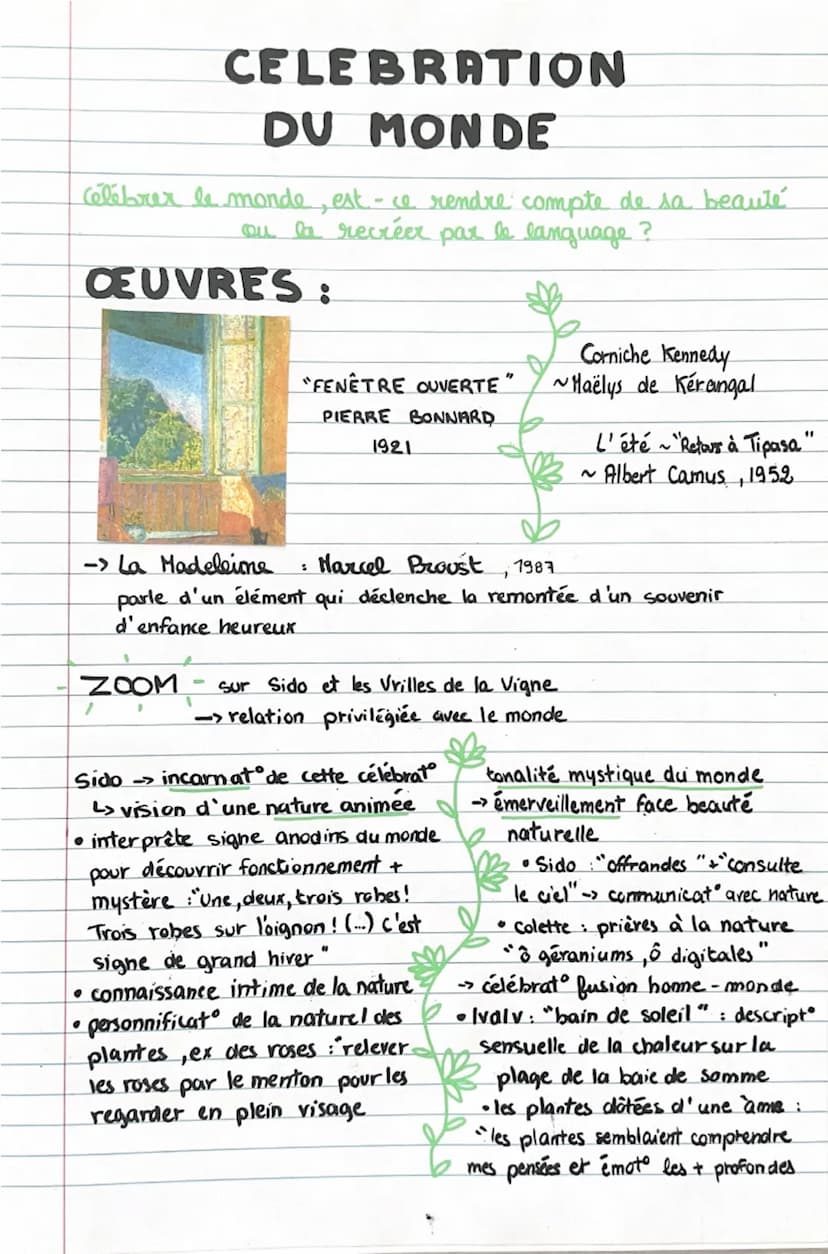 CELEBRATION
DU MONDE
Célébrer le monde, est-ce rendre compte de sa beauté
ou la recréer par le language ?
ŒUVRES :
"FENÊTRE OUVERTE"
PIERRE BONNARD
1921
Corniche Kennedy
~ Maëlys de Kérangal
L'été ~ "Retour à Tipasa"
~ Albert Camus, 1952
-> La Madeleine : Marcel Proust, 1987
parle d'un élément qui déclenche la remontée d'un souvenir
d'enfance heureux
- ZOOM - sur Sido et les Vrilles de la Vigne
-> relation privilégiée avec le monde
Sido -> incarnat° de cette célébrat°
↳ vision d'une nature animée
• interprète signe anodins du monde
pour découvrir fonctionnement +
mystère : "Une, deux, trois robes !
Trois robes sur l'oignon ! (...) c'est
signe de grand hiver"
• connaissance intime de la nature
• personnificat° de la nature / des
plantes, ex des roses : "relever
les roses par le menton pour les
regarder en plein visage
tonalité mystique du monde
-> émerveillement face beauté
naturelle
• Sido : "offrandes" + "consulte
le ciel" -> communicat° avec nature
• Colette : prières à la nature
"ô géraniums, ô digitales"
-> célébrat° fusion homme - monde
• lvdlv : "bain de soleil" : descript°
sensuelle de la chaleur sur la
plage de la baie de somme
• les plantes dôtées d'une âme :
"les plantes semblaient comprendre
mes pensées et émot° les + profondes